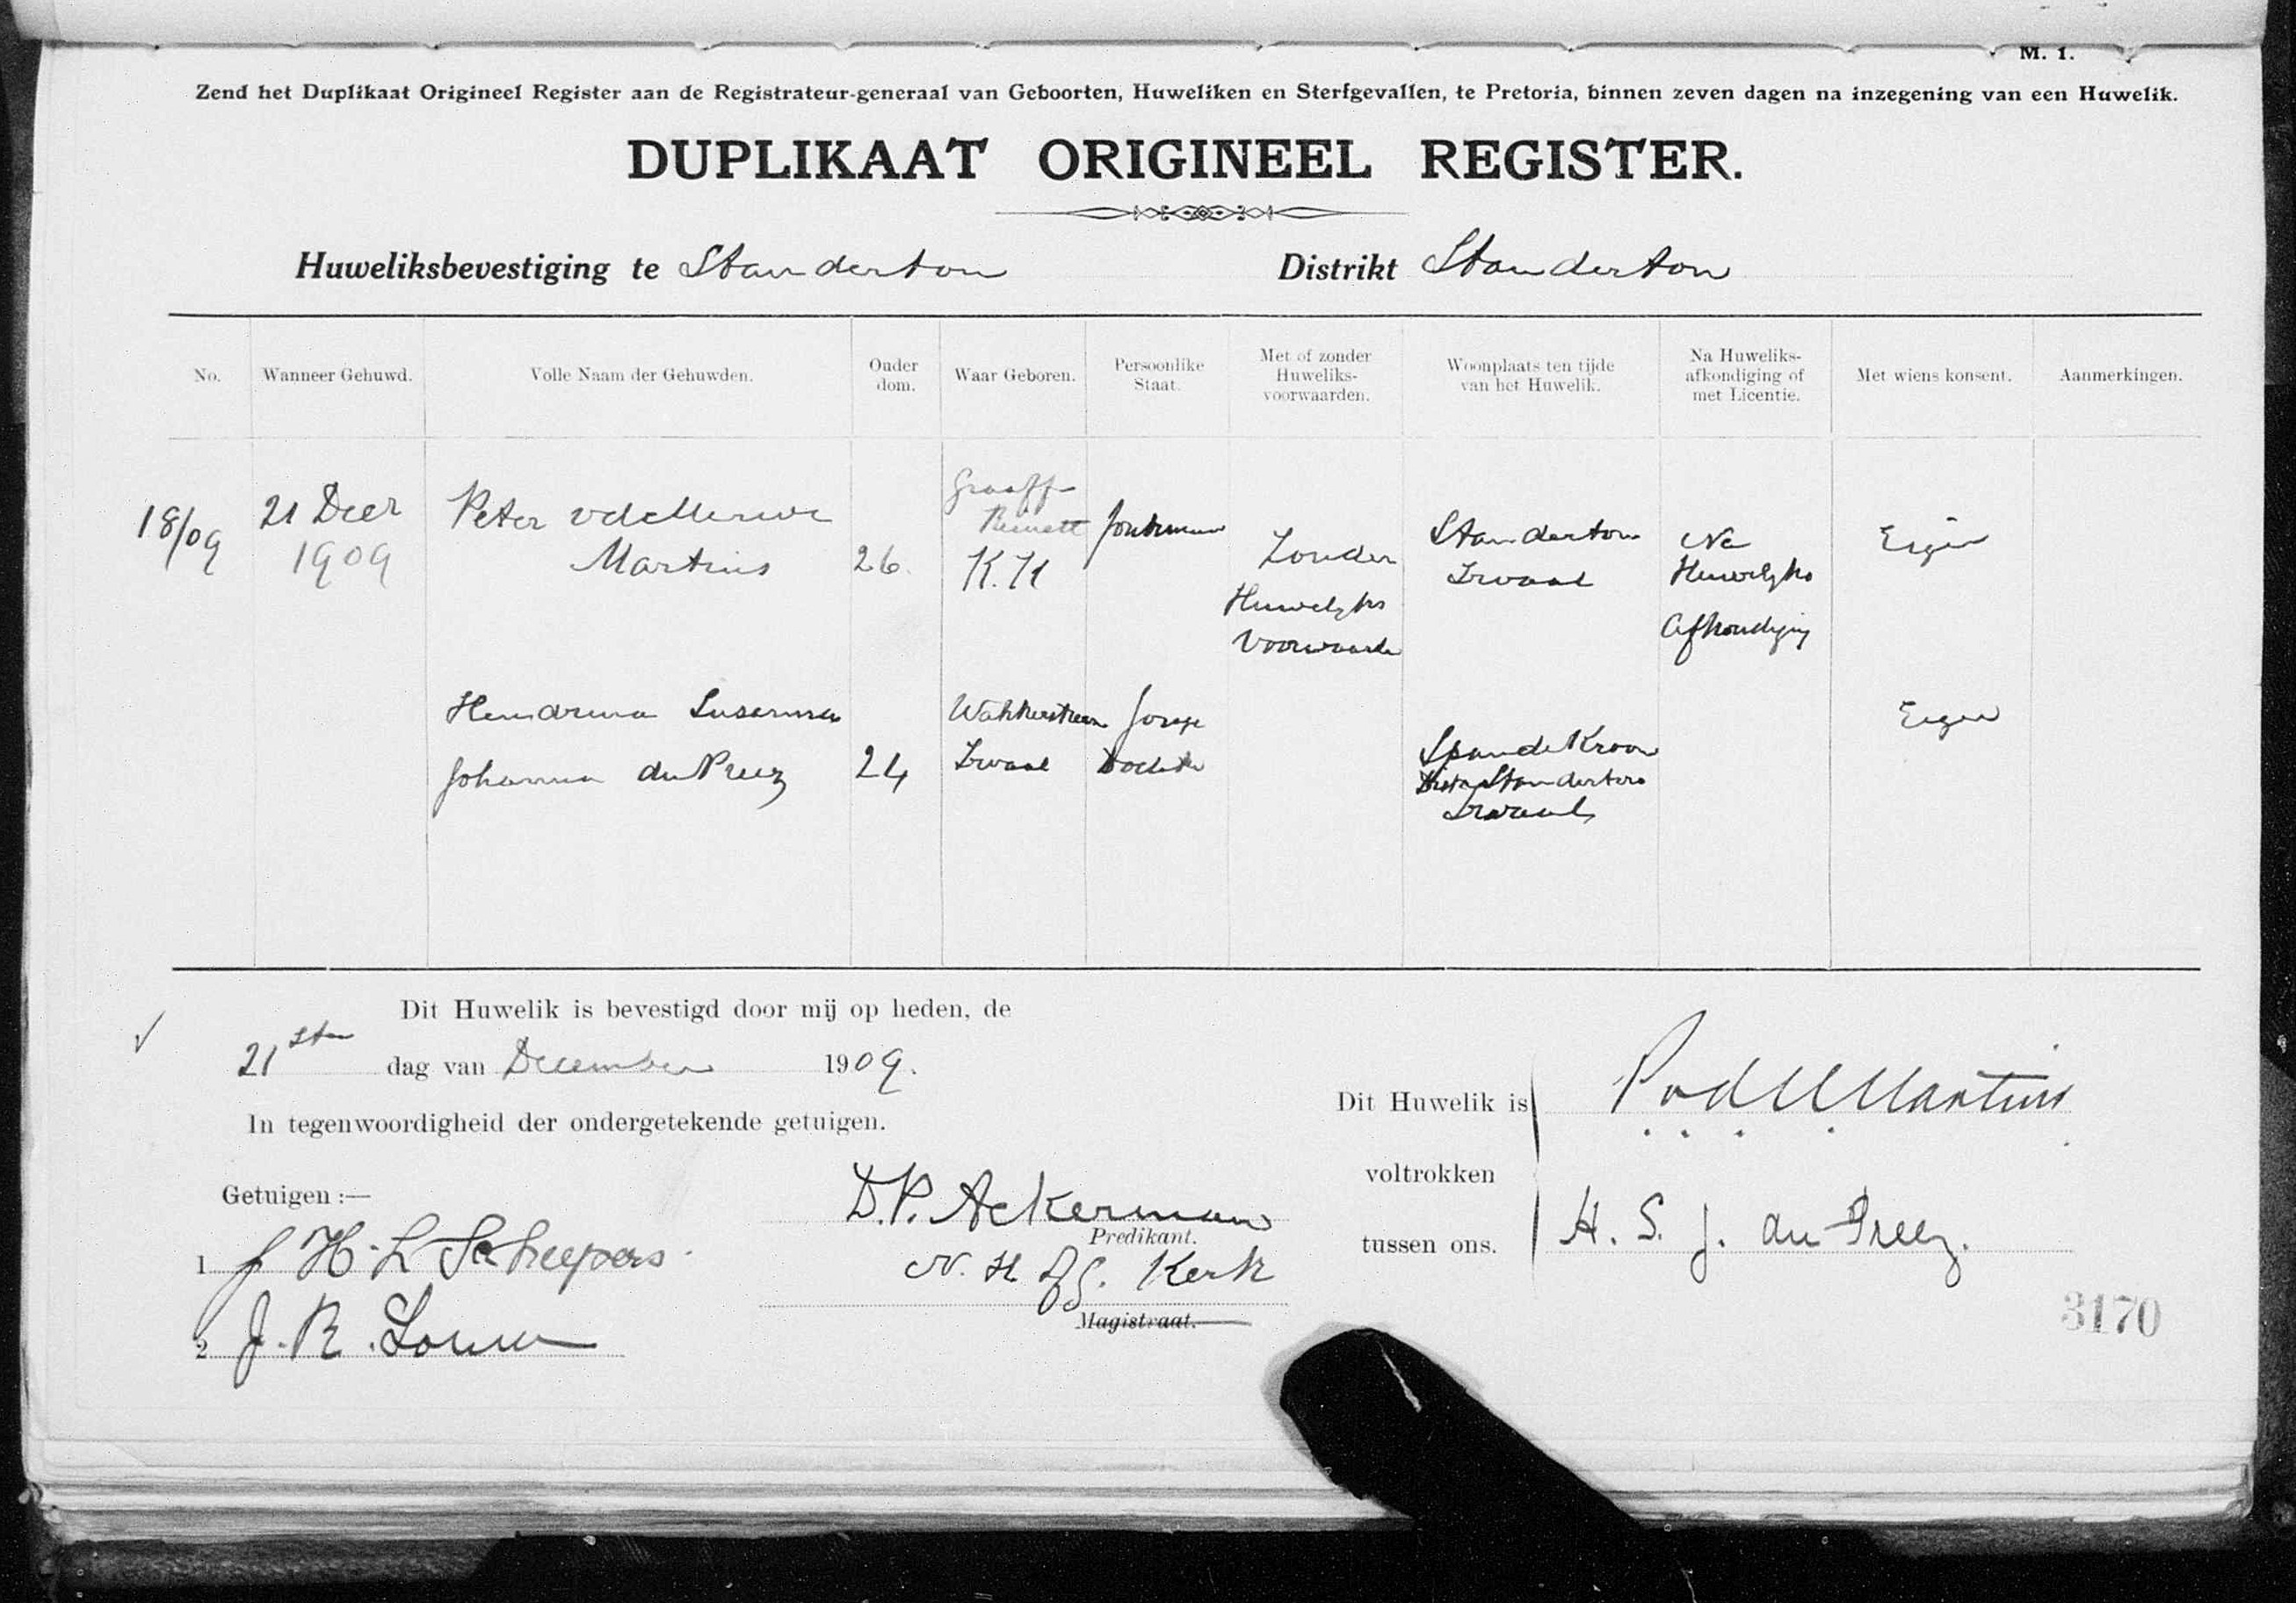 M. 1.
Zend het Duplikaat Origineel Register aan de Registrateur-generaal van Geboorten, Huweliken en Sterfgevallen, te Pretoria, binnen zeven dagen na inzegening van een Huwelik.
DUPLIKAAT ORIGINEEL REGISTER.
Huweliksbevestiging te Standerton Distrikt Standerton
No. Wanneer Gehuwd. Volle Naam der Gehuwden. Ouder dom. Waar Geboren. Persoonlike Staat. Met of zonder Huweliks-voorwaarden. Woonplaats ten tijde van het Huwelik. Na Huweliks-afkondiging of met Licentie. Met wiens konsent. Aanmerkingen.
18/09 21 Decr 1909 Peter vdMerwe Martins 26. Graaff Reinett K.K Jonkman Zonder Huwelyks Voorwaarde Standerton Trvaal Na Huwelyks Afkondiging Eigen
Hendrina Susanna Johanna du Preez 24 Wakkerstroom Trvaal Jonge Dochter Spandikroon Distr Standerton Trvaal Eigen
Dit Huwelik is bevestigd door mij op heden, de
21sten dag van December 1909.
In tegenwoordigheid der ondergetekende getuigen.
Dit Huwelik is voltrokken tussen ons.
PvdMMartins
H. S. J. du Preez.
Getuigen :—
1 J H. L Scheepers.
2 J. R. Louw
D.P. Ackerman
Predikant.
N. H. of G. Kerk
Magistraat.
3170